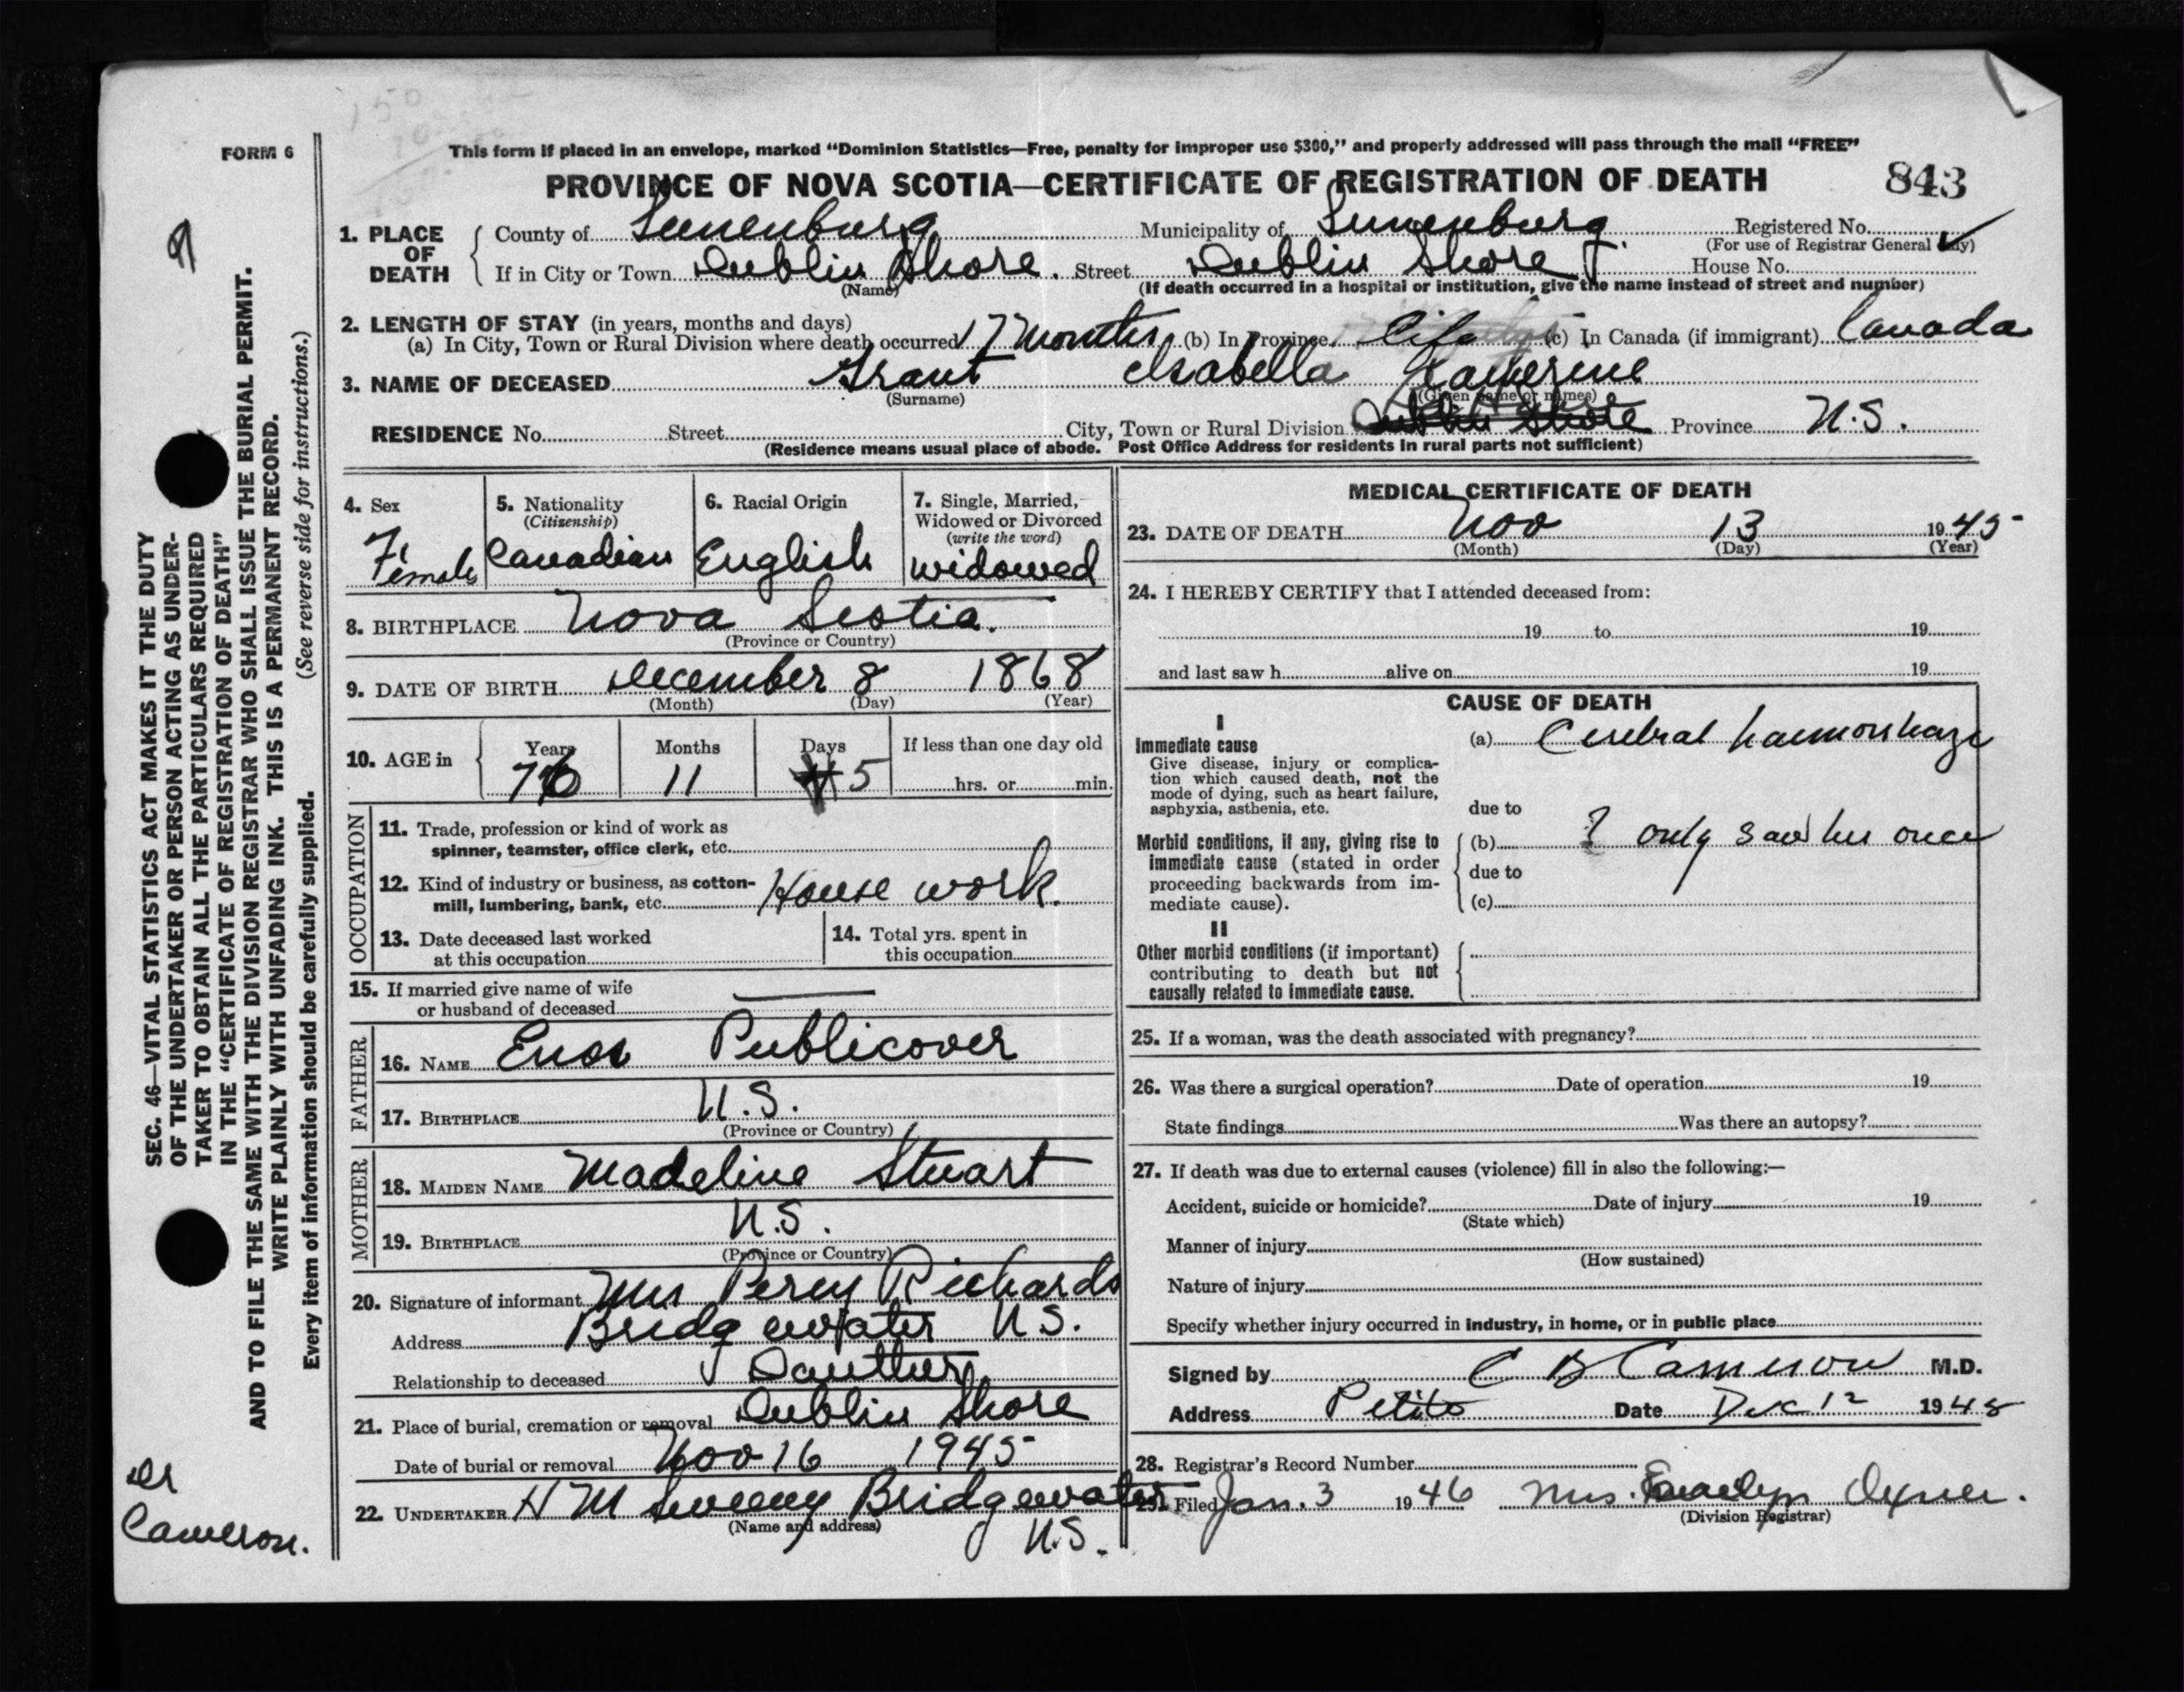 FORM 6
This form if placed in an envelope, marked “Dominion Statistics—Free, penalty for improper use $300,” and properly addressed will pass through the mail “FREE”
PROVINCE OF NOVA SCOTIA—CERTIFICATE OF REGISTRATION OF DEATH
843
1. PLACE OF DEATH
County of Lunenburg Municipality of Lunenburg Registered No.
(For use of Registrar General Only)
If in City or Town Dublin Shore. Street Dublin Shore House No.
(Name) (If death occurred in a hospital or institution, give the name instead of street and number)
2. LENGTH OF STAY (in years, months and days)
(a) In City, Town or Rural Division where death occurred 17 Months (b) In Province Life (c) In Canada (if immigrant) Canada
3. NAME OF DECEASED Grant Isabella Katherine
(Surname) (Given name or names)
RESIDENCE No. Street City, Town or Rural Division Dublin Shore Province N.S.
(Residence means usual place of abode. Post Office Address for residents in rural parts not sufficient)
4. Sex
Female
5. Nationality
(Citizenship)
Canadian
6. Racial Origin
English
7. Single, Married,
Widowed or Divorced
(write the word)
widowed
8. BIRTHPLACE Nova Scotia.
(Province or Country)
9. DATE OF BIRTH December 8 1868
(Month) (Day) (Year)
10. AGE in
Years Months Days If less than one day old
76 11 5 hrs. or min.
OCCUPATION
11. Trade, profession or kind of work as
spinner, teamster, office clerk, etc.
12. Kind of industry or business, as cotton-
mill, lumbering, bank, etc. House work.
13. Date deceased last worked
at this occupation
14. Total yrs. spent in
this occupation
15. If married give name of wife
or husband of deceased
FATHER
16. NAME Enos Publicover
17. BIRTHPLACE N.S.
(Province or Country)
MOTHER
18. MAIDEN NAME Madeline Stuart
19. BIRTHPLACE N.S.
(Province or Country)
20. Signature of informant Mrs Percy Richards
Address Bridgewater N.S.
Relationship to deceased Dautter
21. Place of burial, cremation or removal Dublin Shore
Date of burial or removal Nov 16 1945
22. UNDERTAKER H M Sweeny Bridgewater
(Name and address) N.S.
MEDICAL CERTIFICATE OF DEATH
23. DATE OF DEATH Nov 13 1945
(Month) (Day) (Year)
24. I HEREBY CERTIFY that I attended deceased from:
19 to 19
and last saw h alive on 19
CAUSE OF DEATH
I
Immediate cause
Give disease, injury or complica-
tion which caused death, not the
mode of dying, such as heart failure,
asphyxia, asthenia, etc.
(a) Cerebral haemorrhage
due to
Morbid conditions, if any, giving rise to
immediate cause (stated in order
proceeding backwards from im-
mediate cause).
(b) ? only saw her once
due to
(c)
II
Other morbid conditions (if important)
contributing to death but not
causally related to immediate cause.
25. If a woman, was the death associated with pregnancy?
26. Was there a surgical operation? Date of operation 19
State findings Was there an autopsy?
27. If death was due to external causes (violence) fill in also the following:—
Accident, suicide or homicide? Date of injury 19
(State which)
Manner of injury
(How sustained)
Nature of injury
Specify whether injury occurred in industry, in home, or in public place
Signed by C B Cameron M.D.
Address Petite Date Dec 12 1945
28. Registrar's Record Number
29. Filed Jan. 3 1946 Mrs.
(Division Registrar)
SEC. 46—VITAL STATISTICS ACT MAKES IT THE DUTY
OF THE UNDERTAKER OR PERSON ACTING AS UNDER-
TAKER TO OBTAIN ALL THE PARTICULARS REQUIRED
IN THE “CERTIFICATE OF REGISTRATION OF DEATH”
AND TO FILE THE SAME WITH THE DIVISION REGISTRAR WHO SHALL ISSUE THE BURIAL PERMIT.
WRITE PLAINLY WITH UNFADING INK. THIS IS A PERMANENT RECORD.
Every item of information should be carefully supplied. (See reverse side for instructions.)
Dr
Cameron.